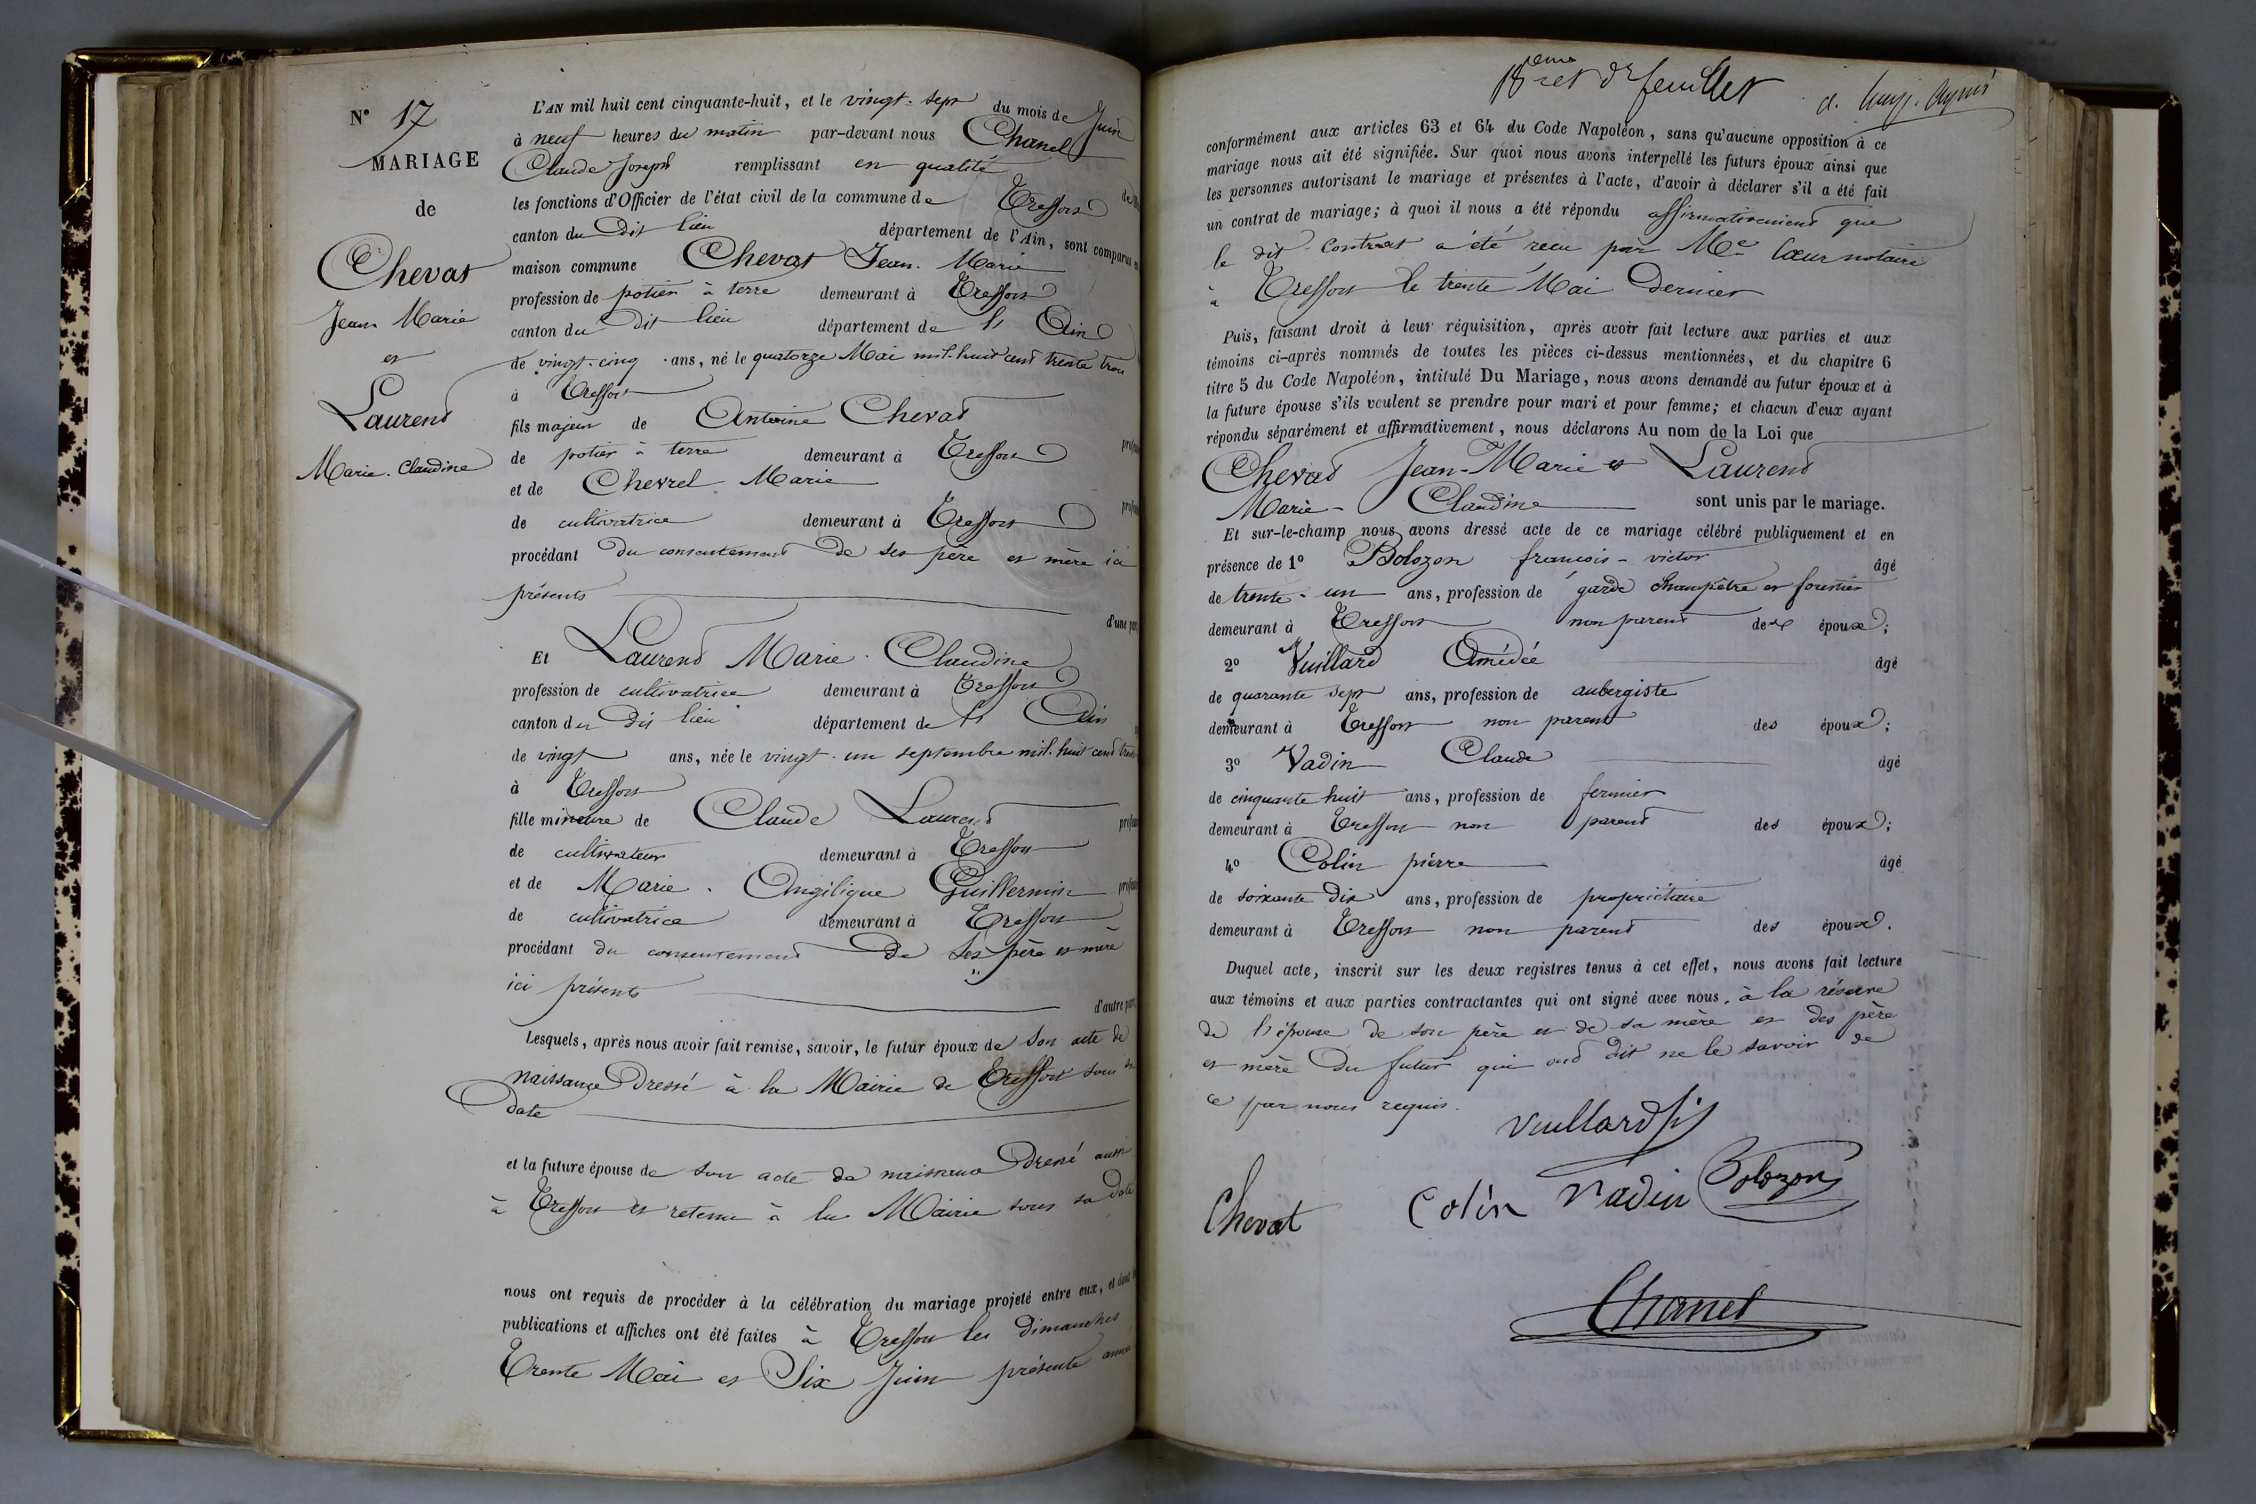 N° 17
MARIAGE
de
Chevat
Jean Marie
et
Laurend
Marie-Claudine
L'AN mil huit cent cinquante-huit, et le vingt-sept du mois de Juin
à neuf heures du matin par-devant nous Chanel
Claude Joseph remplissant en qualité
les fonctions d'Officier de l'état civil de la commune de Treffort
canton du dit lieu département de l'Ain, sont comparus
maison commune Chevat Jean-Marie
profession de potier à terre demeurant à Treffort
canton du dit lieu département de l'Ain
de vingt-cinq ans, né le quatorze Mai mil-huit cent trente trois
à Treffort
fils majeur de Antoine Chevat
de potier à terre demeurant à Treffort
et de Chevrel Marie
de cultivatrice demeurant à Treffort
procédant du consentement de ses père et mère ici
présents
d'une part,
Et Laurend Marie-Claudine
profession de cultivatrice demeurant à Treffort
canton du dit lieu département de l'Ain
de vingt ans, née le vingt-un septembre mil-huit cent
à Treffort
fille mineure de Claude Laurend
de cultivateur demeurant à Treffort
et de Marie-Angélique Guillermin
de cultivatrice demeurant à Treffort
procédant du consentement de ses père et mère
ici présents
d'autre part,
Lesquels, après nous avoir fait remise, savoir, le futur époux de son acte de
naissance dressé à la Mairie de Treffort sous sa
date
et la future épouse de son acte de naissance dressé aussi
à Treffort et retenu à la Mairie sous sa date
nous ont requis de procéder à la célébration du mariage projeté entre eux, et dont
publications et affiches ont été faites à Treffort les dimanches
Trente Mai et Six Juin présente année
18eme et dr feuillet
conformément aux articles 63 et 64 du Code Napoléon, sans qu'aucune opposition à ce
mariage nous ait été signifiée. Sur quoi nous avons interpellé les futurs époux ainsi que
les personnes autorisant le mariage et présentes à l'acte, d'avoir à déclarer s'il a été fait
un contrat de mariage; à quoi il nous a été répondu affirmativement que
le dit contrat a été reçu par Me Cœur notaire
à Treffort le trente Mai dernier
Puis, faisant droit à leur réquisition, après avoir fait lecture aux parties et aux
témoins ci-après nommés de toutes les pièces ci-dessus mentionnées, et du chapitre 6
titre 5 du Code Napoléon, intitulé Du Mariage, nous avons demandé au futur époux et à
la future épouse s'ils veulent se prendre pour mari et pour femme; et chacun d'eux ayant
répondu séparément et affirmativement, nous déclarons Au nom de la Loi que
Chevat Jean-Marie et Laurend
Marie-Claudine sont unis par le mariage.
Et sur-le-champ nous avons dressé acte de ce mariage célébré publiquement et en
présence de 1° Bolozon francois-victor âgé
de trente-un ans, profession de garde champêtre et forestier
demeurant à Treffort non parent des époux;
2° Vuillard Amédée âgé
de quarante sept ans, profession de aubergiste
demeurant à Treffort non parent des époux;
3° Vadin Claude âgé
de cinquante huit ans, profession de fermier
demeurant à Treffort non parent des époux;
4° Colin pierre âgé
de soixante dix ans, profession de propriétaire
demeurant à Treffort non parent des époux.
Duquel acte, inscrit sur les deux registres tenus à cet effet, nous avons fait lecture
aux témoins et aux parties contractantes qui ont signé avec nous, à la réserve
de l'épouse de son père et de sa mère et des père
et mère du futur qui ont dit ne le savoir de
ce par nous requis.
Vuillard fils
Chevat Colin Vadin Bolozon
Chanel